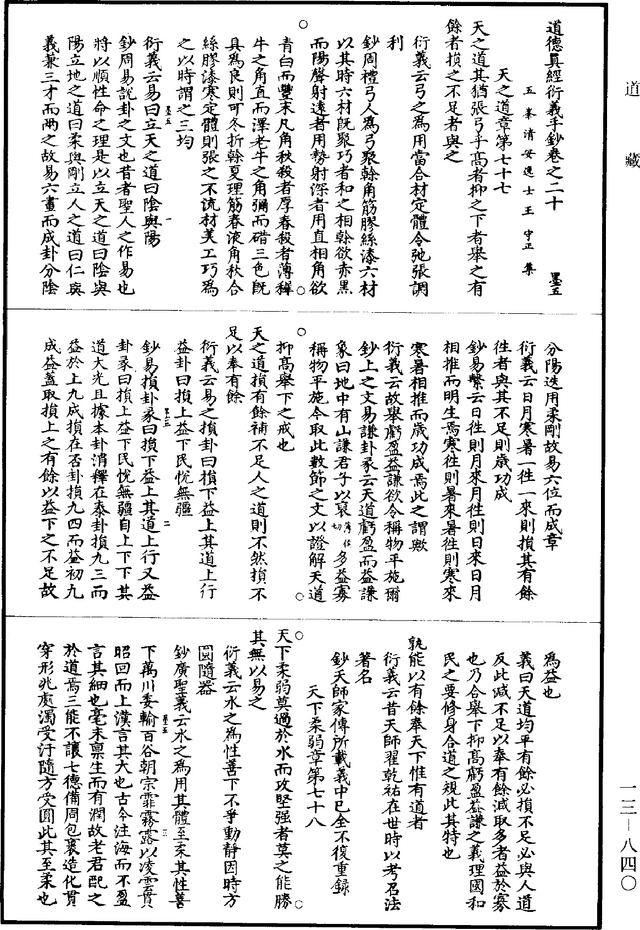 道藏
道德真經衍義手鈔卷之二十　墨五
五峯清安逸士王守正集
天之道章第七十七
天之道其猶張弓乎高者抑之下者舉之有
餘者損之不足者與之
衍義云弓之為用當合材定體令弛張調
利
鈔周禮弓人為弓聚榦角筋膠絲漆六材
以其時六材既聚巧者和之相榦欲赤黑
而陽聲射遠者用勢射深者用直相角欲
青白而豐末凡角秋殺者厚春殺者薄稺
牛之角直而澤老牛之角彌而硝三色既
具為良則可冬折榦夏理筋春液角秋合
絲膠漆寒定體則張之不流材美工巧為
之以時謂之三均
衍義云易曰立天之道曰陰與陽
鈔周易說卦之文也昔者聖人之作易也
將以順性命之理是以立天之道曰陰與
陽立地之道曰柔與剛立人之道曰仁與
義兼三才而兩之故易六畫而成卦分陰
分陽迭用柔剛故易六位而成章
衍義云日月寒暑一徃一來則損其有餘
徃者與其不足則歲功成
鈔易繫云日徃則月來月徃則日來日月
相推而明生焉寒徃則暑來暑徃則寒來
寒暑相推而歲功成焉此之謂歟
衍義云故舉虧盈益謙欲令稱物平施爾
鈔上之文易謙卦彖云天道虧盈而益謙
象曰地中有山謙君子以裒多益寡
稱物平施令取此數節之文以證解天道
抑高舉下之戒也
天之道損有餘補不足人之道則不然損不
足以奉有餘
衍義云易之損卦曰損下益上其道上行
益卦曰損上益下民恱無疆
鈔易損卦彖曰損下益上其道上行又益
卦彖曰損上益下民恱無疆自上下下其
道大光且據本卦消釋在泰卦損九三而
益於上九成損在否卦損九四而益初九
成益蓋取損上之有餘以益下之不足故
為益也
義曰天道均平有餘必損不足必與人道
反此減不足以奉有餘減取多者益於寡
也乃合舉下抑高虧盈益謙之義理國和
民之要修身合道之規此其特也
孰能以有餘奉天下惟有道者
衍義云昔天師翟乾祐在世時以考召法
著名
鈔天師家傳所載義中已全不復重録
天下柔弱章第七十八
天下柔弱莫過於水而攻堅强者莫之能勝
其無以易之
衍義云水之為性善下不爭動静因時方
圓隨器
鈔廣聖義云水之為用其體至柔其性善
下萬川委輸百谷朝宗霏霧露以凌雲貫
昭回而上漢言其大也古今注海而不盈
言其細也毫末禀生而有潤故老君配之
於道焉三能不讓七德備周包裹造化貫
穿形兆處濁受汙隨方受圓此其至柔也
一三－八四〇